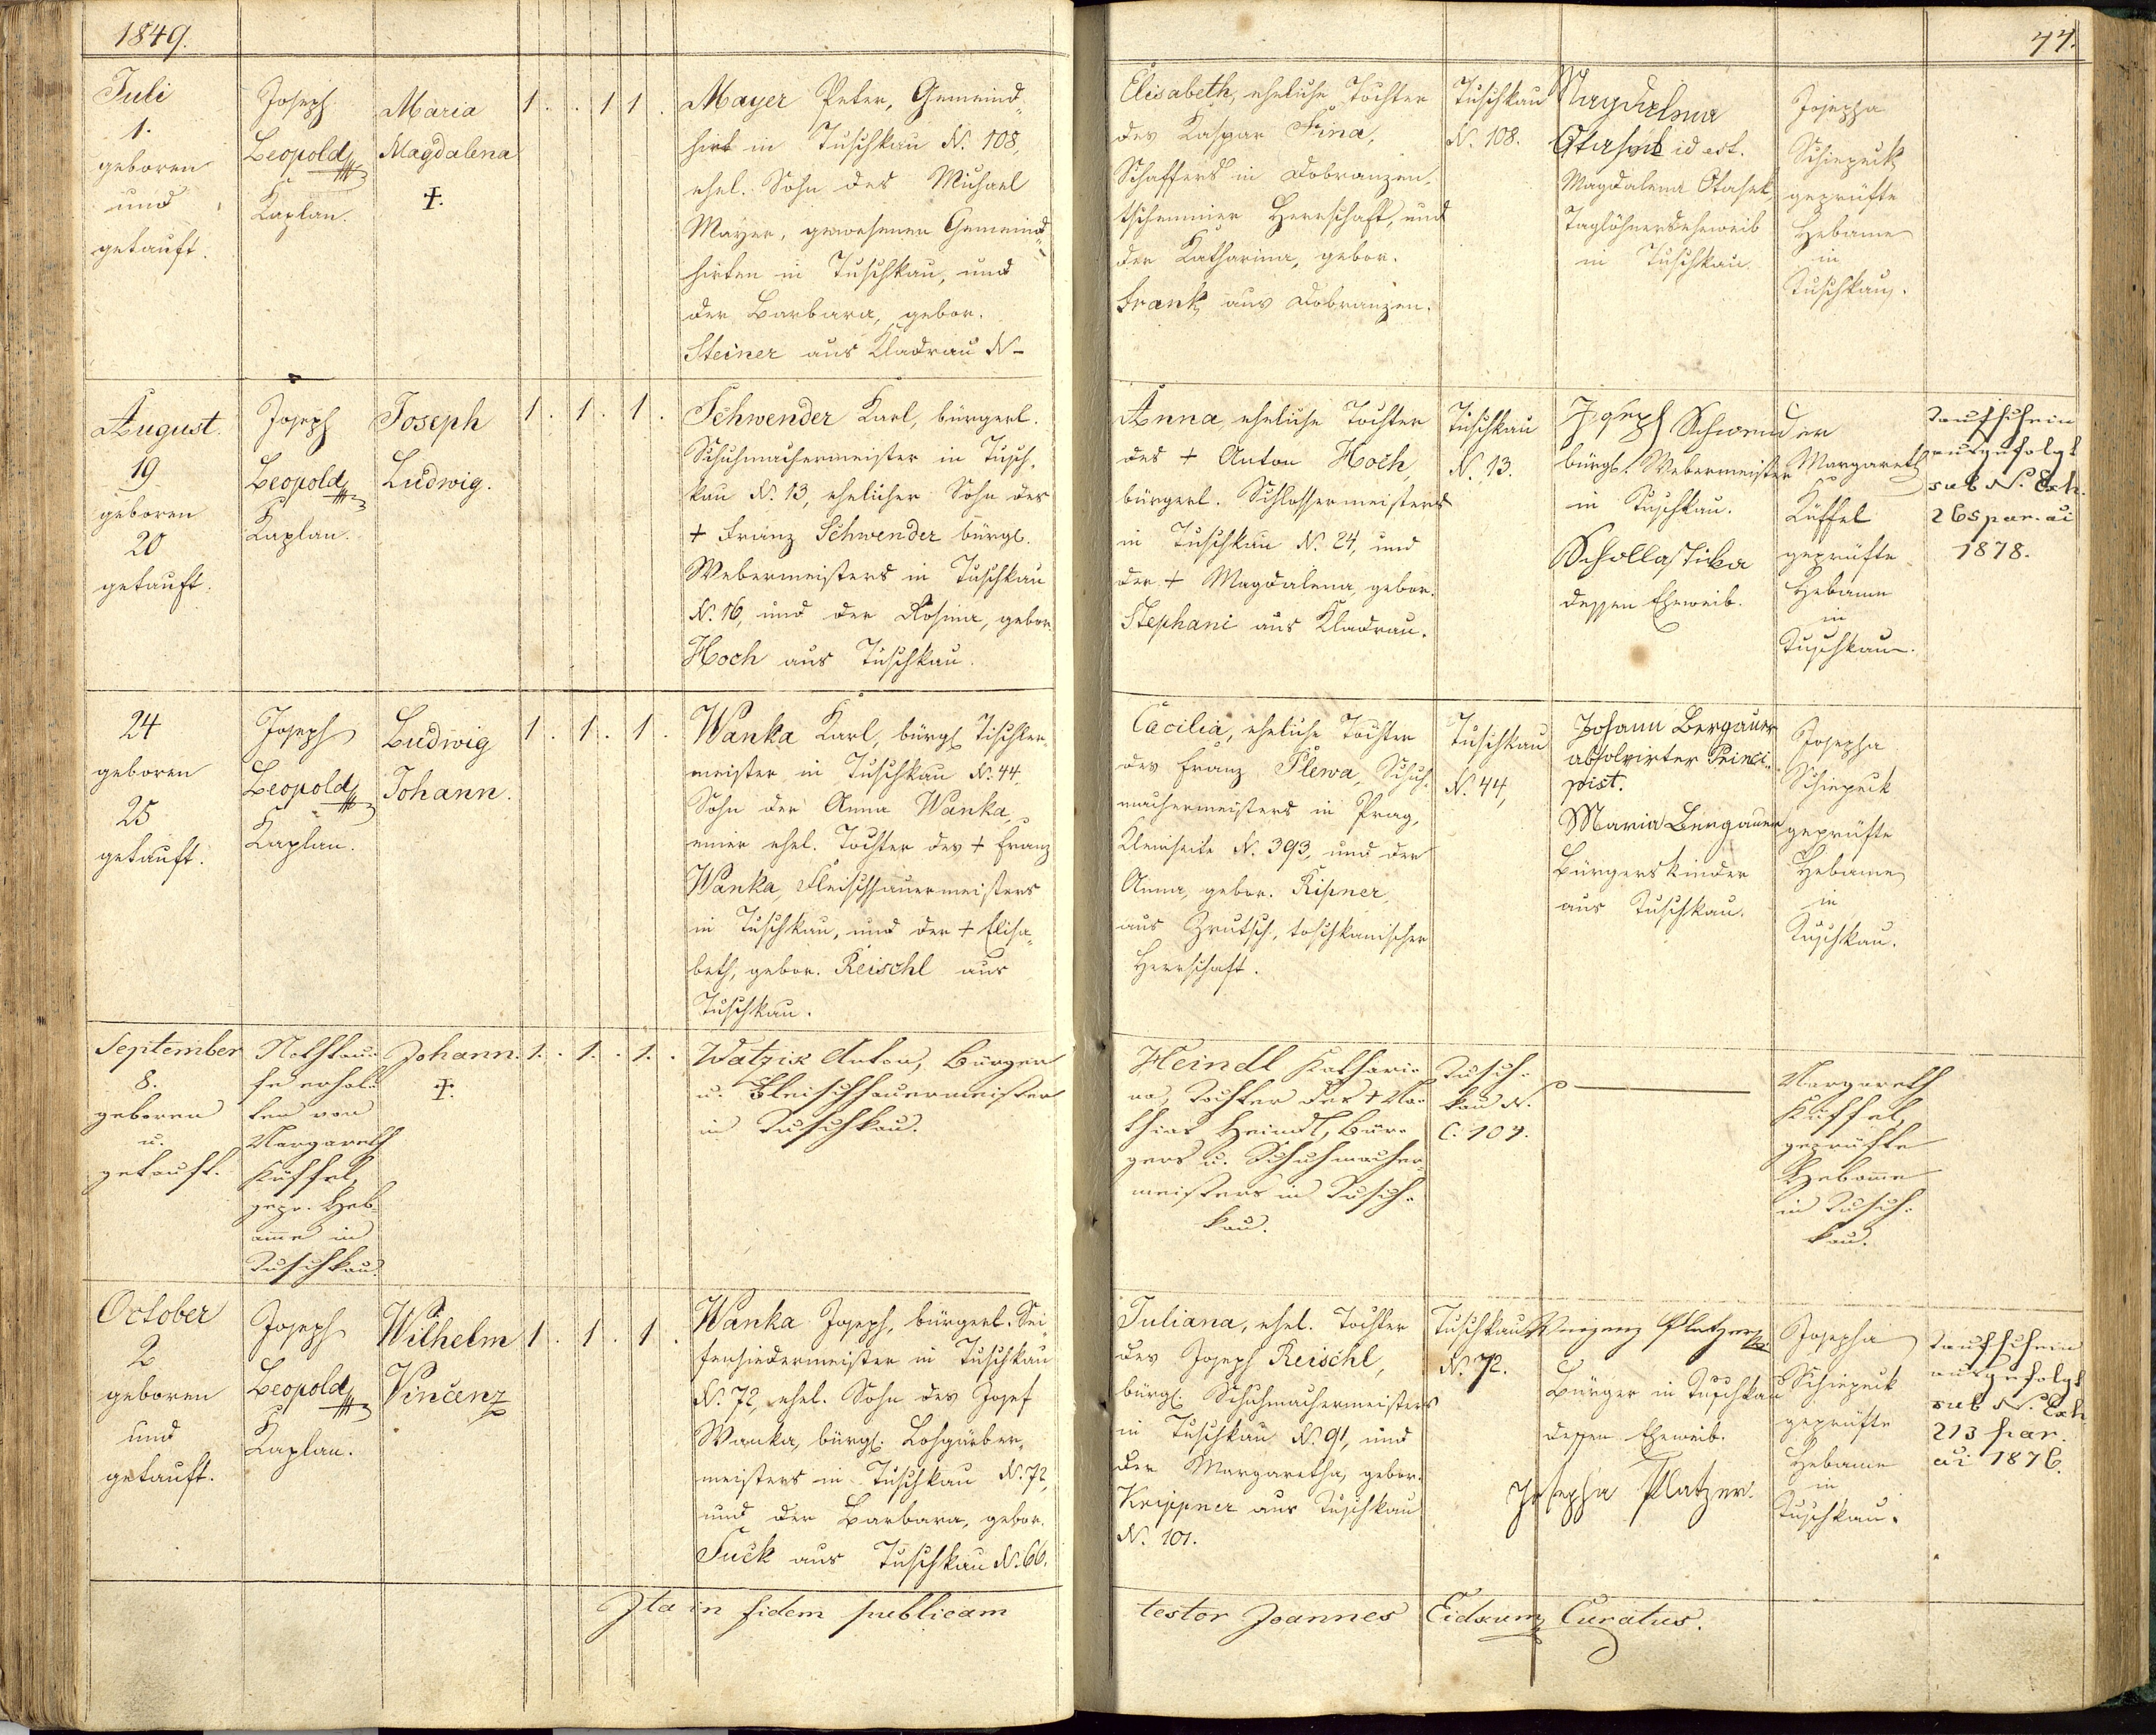 1849.
77.
Juli
1.
geboren
und
getauft.
Joseph
Leopold
Kaplan.
Maria
Magdalena
†.
1. . 1 1.
Mayer Peter, Gemeind„
hirt in Tuschkau N. 108,
ehel. Sohn des Michael
Mayer, gewesenen Gemeind„
hirten in Tuschkau, und
der Barbara, gebor.
Steiner aus Kladrau N–
Elisabeth, eheliche Tochter
des Kaspar Fina,
Schaffers in Dobranzen,
Herrschaft, und
der Katharina, gebor.
Frank aus Dobranzen.
Tuschkau
N. 108.
Magdalena
Otasek id est.
Magdalena Otasek,
Taglöhnerseheweib
in Tuschkau.
Josepha
Schiepeck
geprüfte
Hebame
in
Tuschkau.
August.
19.
geboren
20
getauft.
Joseph
Leopold
Kaplan.
Joseph
Ludwig.
1. 1. 1.
Schwender Karl, bürgerl.
Schuhmachermeister in Tusch„
kau N. 13, ehelicher Sohn des
† Franz Schwender bürgl.
Webermeisters in Tuschkau
N. 16, und der Rosina, gebor.
Hoch aus Tuschkau.
Anna, eheliche Tochter
des † Anton Hoch,
bürgerl. Schlossermeisters
in Tuschkau N. 24, und
der † Magdalena, gebor.
Stephani aus Kladrau.
Tuschkau
N. 13.
Joseph Schwender
bürgl. Webermeister
in Tuschkau.
Schollastika
dessen Eheweib.
Margareth
Küffel
geprüfte
Hebame
in
Tuschkau.
Taufschein
ausgefolgt
sub N. Exh.
265 par. ai
1878.
24
geboren
25
getauft.
Joseph
Leopold
Kaplan.
Ludwig
Johann.
1. 1. 1.
Wanka Karl, bürgl. Tischler„
meister in Tuschkau N. 44.
Sohn der Anna Wanka,
einer ehel. Tochter des † Franz
Wanka, Fleischhauermeisters
in Tuschkau, und der † Elisa„
beth, gebor. Reischl aus
Tuschkau.
Cäcilia, eheliche Tochter
des Franz Plewa, Schuh„
machermeisters in Prag,
Kleinseite N. 393, und der
Anna, gebor. Kipner,
aus Zrutsch, toschkanischer
Herrschaft.
Tuschkau
N. 44,
Johann Bergauer
absolvirter Princi„
pist.
Maria Bergauer
Bürgerskinder
aus Tuschkau.
Josepha
Schiepeck
geprüfte
Hebame
in
Tuschkau.
September
8.
geboren
u.
getauft.
Nothtau„
fe erhal„
ten von
Margareth
Küffel,
gepr. Heb„
amme in
Tuschkau.
Johann.
†.
1. . 1. . 1. .
Watzik Anton, Bürger
u. Fleischhauermeister
in Tuschkau.
Heindl Kathari„
na, Tochter des † Ma„
thias Heindl, Bür„
gers u. Schuhmacher„
meisters in Tusch„
kau.
Tusch„
kau N.
C. 107.
Margareth
Küffel,
geprüfte
Hebame
in Tusch„
kau.
October
2
geboren
und
getauft.
Joseph
Leopold
Kaplan.
Wilhelm
Vincenz
1. 1. 1.
Wanka Joseph, bürgerl. Sei„
fensiedermeister in Tuschkau
N. 72, ehel. Sohn des Josef
Wanka, bürgl. Lohgärber„
meisters in Tuschkau N. 72,
und der Barbara, gebor.
Fuck aus Tuschkau N. 66.
Juliana, ehel. Tochter
des Joseph Reischl,
bürgl. Schuhmachermeisters
in Tuschkau N. 91, und
der Margaretha, gebor.
Krippner aus Tuschkau
N. 101.
Tuschkau
N. 72.
Vinzenz Platzer
Bürger in Tuschkau
dessen Eheweib.
Josepha Platzer.
Josepha
Schiepeck
geprüfte
Hebame
in
Tuschkau.
Taufschein
ausgefolgt
sub N. Exh
213 par.
ai 1876.
Ita in fidem publicam testor Joannes Eidxum, Curatus.